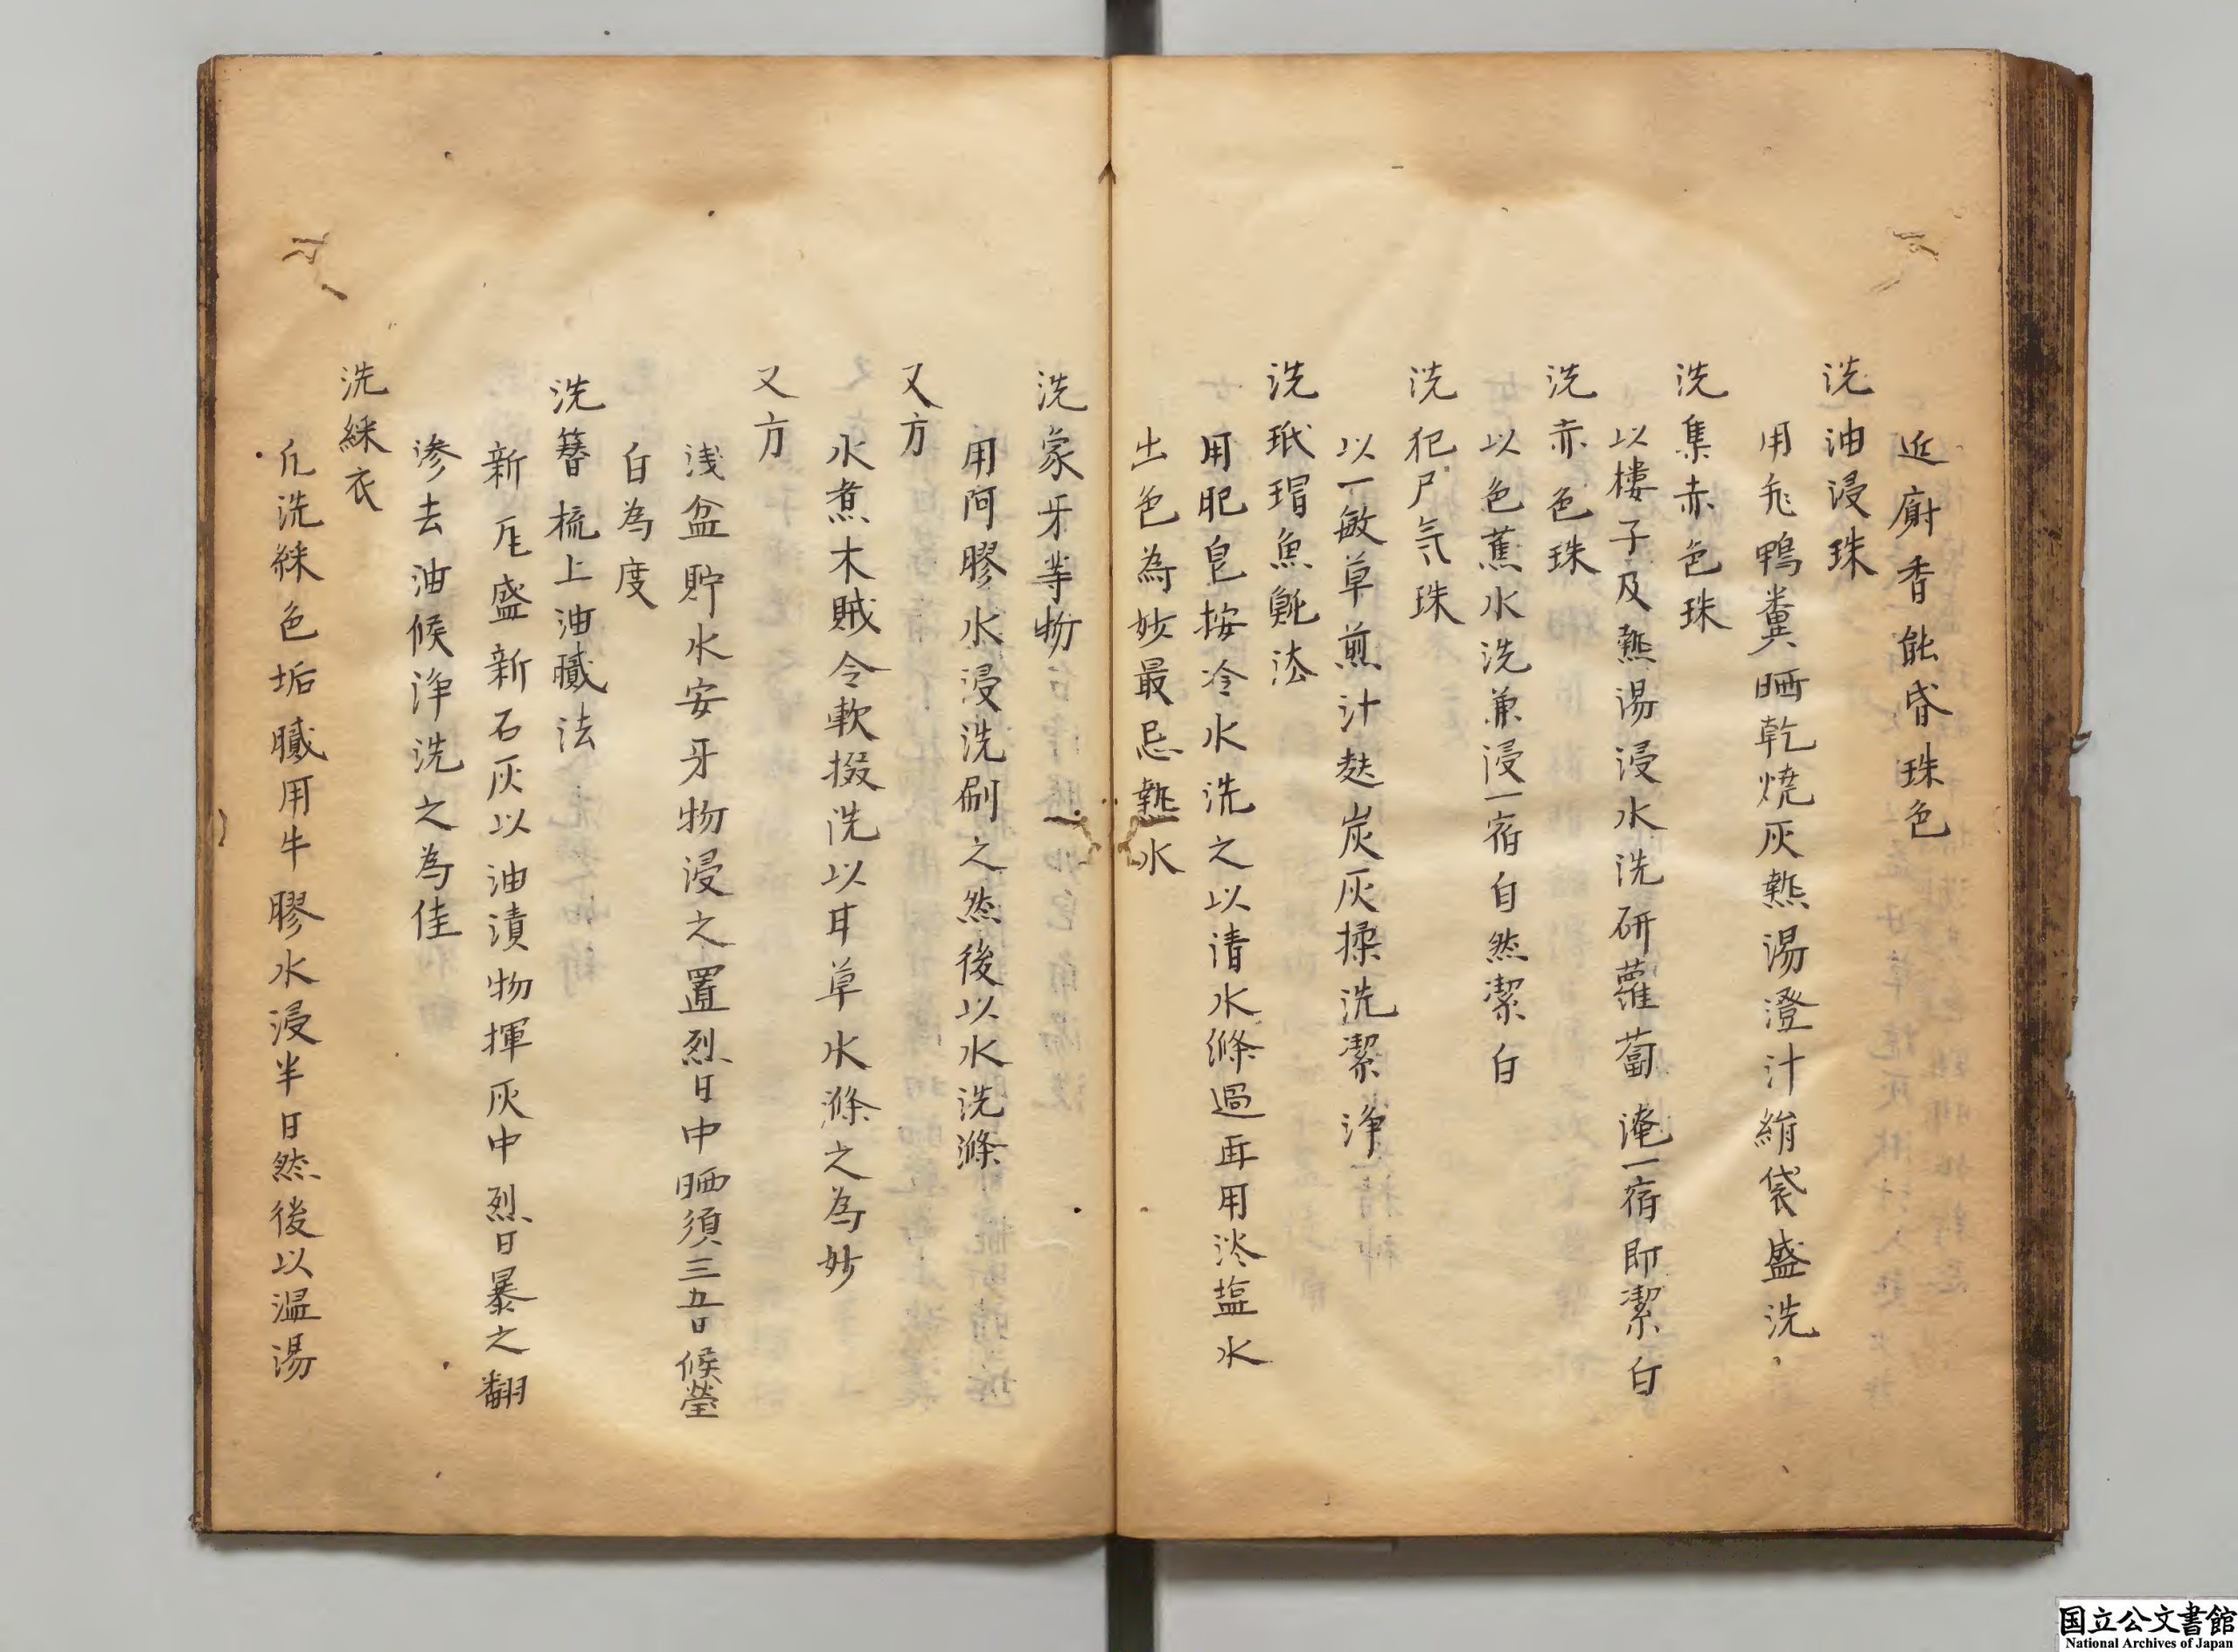 近廚香能昏珠色
洗油浸珠
用鵞鴨糞晒乾燒灰熱湯澄汁絹袋盛洗
洗集赤色珠
以樓子及熱湯浸水洗研蘿蔔淹一宿即潔白
洗赤色珠
以色蕉水洗兼浸一宿自然潔白
洗犯尸気珠
以一敏草煎汁麸炭灰揉洗潔浄
洗玳瑁魚魫法
用肥皂挼冷水洗之以清水滌過再用淡塩水
出色為妙最忌熱水
洗象牙等物
用阿膠水浸洗刷之然後以水洗滌
又方
水煮木賊令軟掇洗以甘草水滌之為妙
又方
浅盆貯水安牙物浸之置烈日中晒須三五日候瑩
白為度
洗簪梳上油膱法
新瓦盛新石灰以油漬物揮灰中烈日暴之翻
渗去油候浄洗之為佳
洗綵衣
凢洗綵色垢膱用牛膠水浸半日然後以温湯
国立公文書館
National Archives of Japan